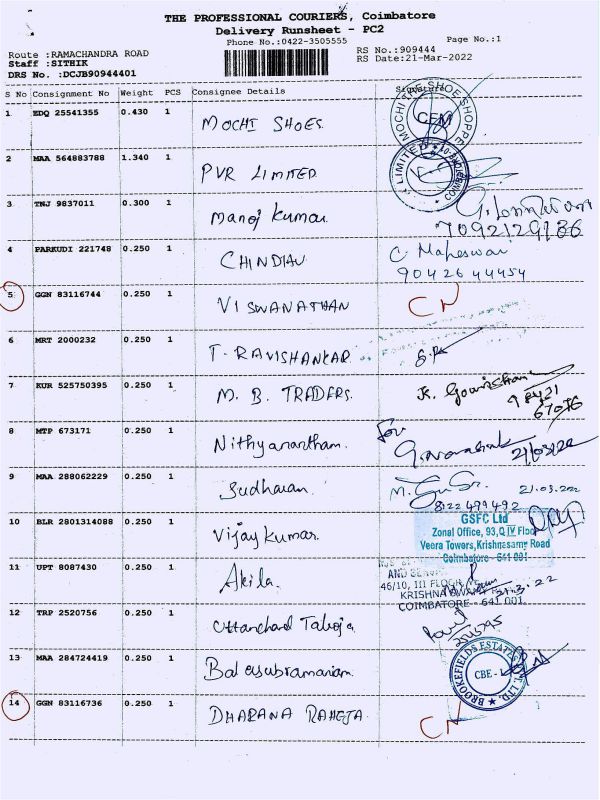 THE PROFESSIONAL COURIERS, Coimbatore
Delivery Runsheet - PC2
Phone No.:0422-3505555
Page No.:1
Route :RAMACHANDRA ROAD
RS No.:909444
Staff :SITHIK
RS Date:21-Mar-2022
DRS No. :DCJB90944401
S No Consignment No Weight PCS Consignee Details Signature
1 EDQ 25541355 0.430 1 MOCHI SHOES
MOCHI THE SHOE SHOPPE
2 MAA 564883788 1.340 1 PVR LIMITED
LIMITED
3 TNJ 9837011 0.300 1 Manoj Kumar
7092129186
4 PARKUDI 221748 0.250 1 CHINDIAN C. Maheswari
9042644454
5 GGN 83116744 0.250 1 VISWANATHAN CN
6 MRT 2000232 0.250 1 T. RAVISHANKAR
7 KUR 525750395 0.250 1 M. B. TRADERS.
98421
67076
8 MTP 673171 0.250 1 Nithyanantham. for
21/03/22
9 MAA 288062229 0.250 1 Sudharan 21.03.2022
8122499492
GSFC Ltd
10 BLR 2801314088 0.250 1 Vijay Kumar.
Zonal Office, 93,Q IV Floor
Veera Towers,Krishnasamy Road
Coimbatore - 641 001
11 UPT 8087430 0.250 1 Akila.
46/10, III FLOOR
KRISHNA SWAMY
COIMBATORE - 641 001.
12 TRP 2520756 0.250 1 Uttanchand Taloja
13 MAA 284724419 0.250 1 Balasubramaniam.
BROOKEFIELDS ESTATES PVT. LTD.
CBE -
14 GGN 83116736 0.250 1 DHARANA RAHEJA. CN